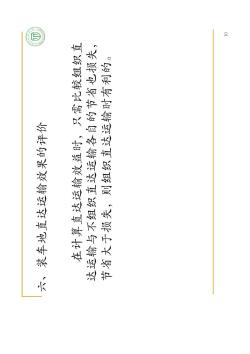 六、装车地直达运输效果的评价
在计算直达运输效益时，只需比较组织直
达运输与不组织直达运输各自的节省也损失，
节省大于损失，则组织直达运输时有利的。